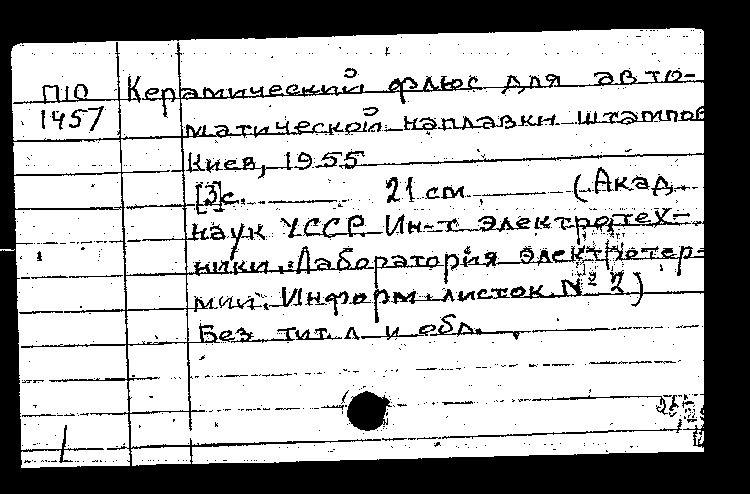 П10 Керамический флюс для авто-
1457 матической наплавки штампов
Киев, 1955
[3]с. 21 см (Акад.
наук УССР. Ин-т электротех-
ники. Лаборатория электротер-
мии. Информ. листок. № 2)
Без тит. л. и обл.